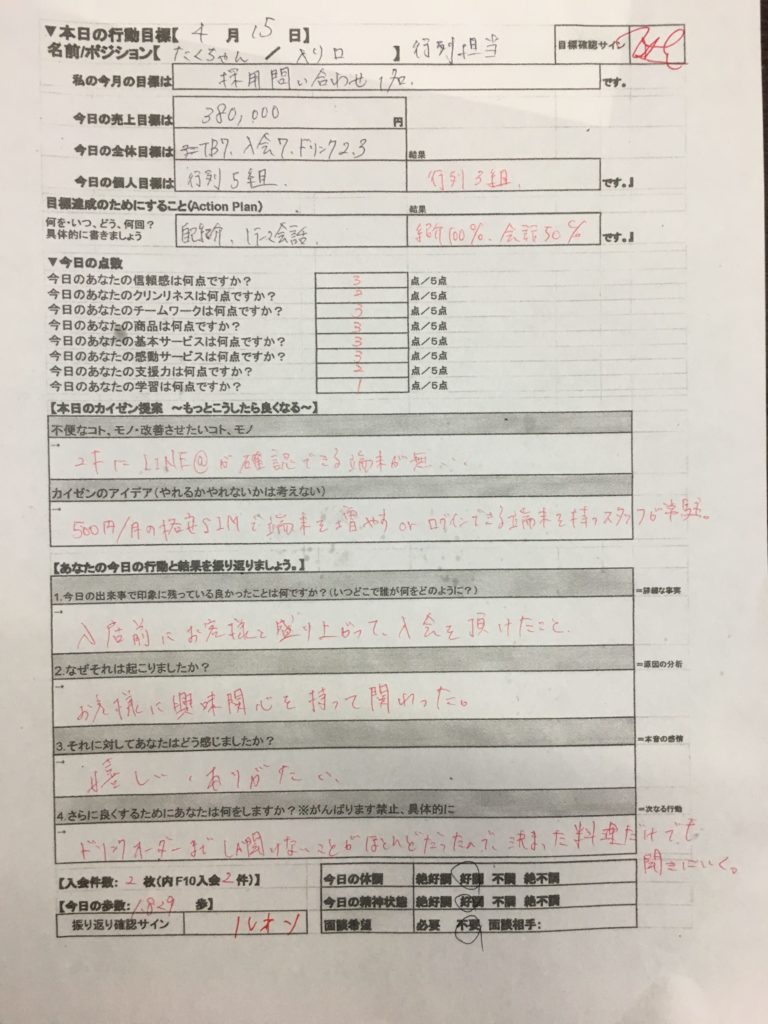 ▼本日の行動目標【 4 月 15 日】
名前/ポジション【たくちゃん / 入り口 】行列担当
目標確認サイン
私の今月の目標は 採用問い合わせ 1名. です。
今日の売上目標は 380,000 円
今日の全体目標は TB7、入会7、ドリンク2.3 結果
今日の個人目標は 行列5組. 行列3組. です。』
目標達成のためにすること(Action Plan) 結果
何を・いつ、どう、何回?
具体的に書きましょう
自己紹介、1テーマ会話. 紹介100%、会話50% です。』
▼今日の点数
今日のあなたの信頼感は何点ですか? 3 点/5点
今日のあなたのクリンリネスは何点ですか? 2 点/5点
今日のあなたのチームワークは何点ですか? 3 点/5点
今日のあなたの商品は何点ですか? 3 点/5点
今日のあなたの基本サービスは何点ですか? 3 点/5点
今日のあなたの感動サービスは何点ですか? 3 点/5点
今日のあなたの支援力は何点ですか? 2 点/5点
今日のあなたの学習は何点ですか? 1 点/5点
【本日のカイゼン提案 ~もっとこうしたら良くなる~】
不便なコト、モノ・改善させたいコト、モノ
→
2Fに LINE@が確認できる端末が無い、、
カイゼンのアイデア(やれるかやれないかは考えない)
→
500円/月の格安SIMで端末を増やす or ログインできる端末を持つスタッフが常駐。
【あなたの今日の行動と結果を振り返りましょう。】
1.今日の出来事で印象に残っている良かったことは何ですか?(いつどこで誰が何をどのように?) =詳細な事実
→
入店前にお客様と盛り上がって、入会を頂けたこと.
2.なぜそれは起こりましたか? =原因の分析
→
お客様に興味関心を持って関わった。
3.それに対してあなたはどう感じましたか? =本音の感情
→
嬉しい、ありがたい、
4.さらに良くするためにあなたは何をしますか?※がんばります禁止、具体的に =次なる行動
→
ドリンクオーダーまでしか聞けないことがほとんどだったので、決まった料理だけでも
聞きにいく。
【入会件数: 2 枚(内F10入会 2 件)】
今日の体調 絶好調 好調 不調 絶不調
【今日の歩数: 1,829 歩】
今日の精神状態 絶好調 好調 不調 絶不調
振り返り確認サイン ルオン
面談希望 必要 不要 面談相手: